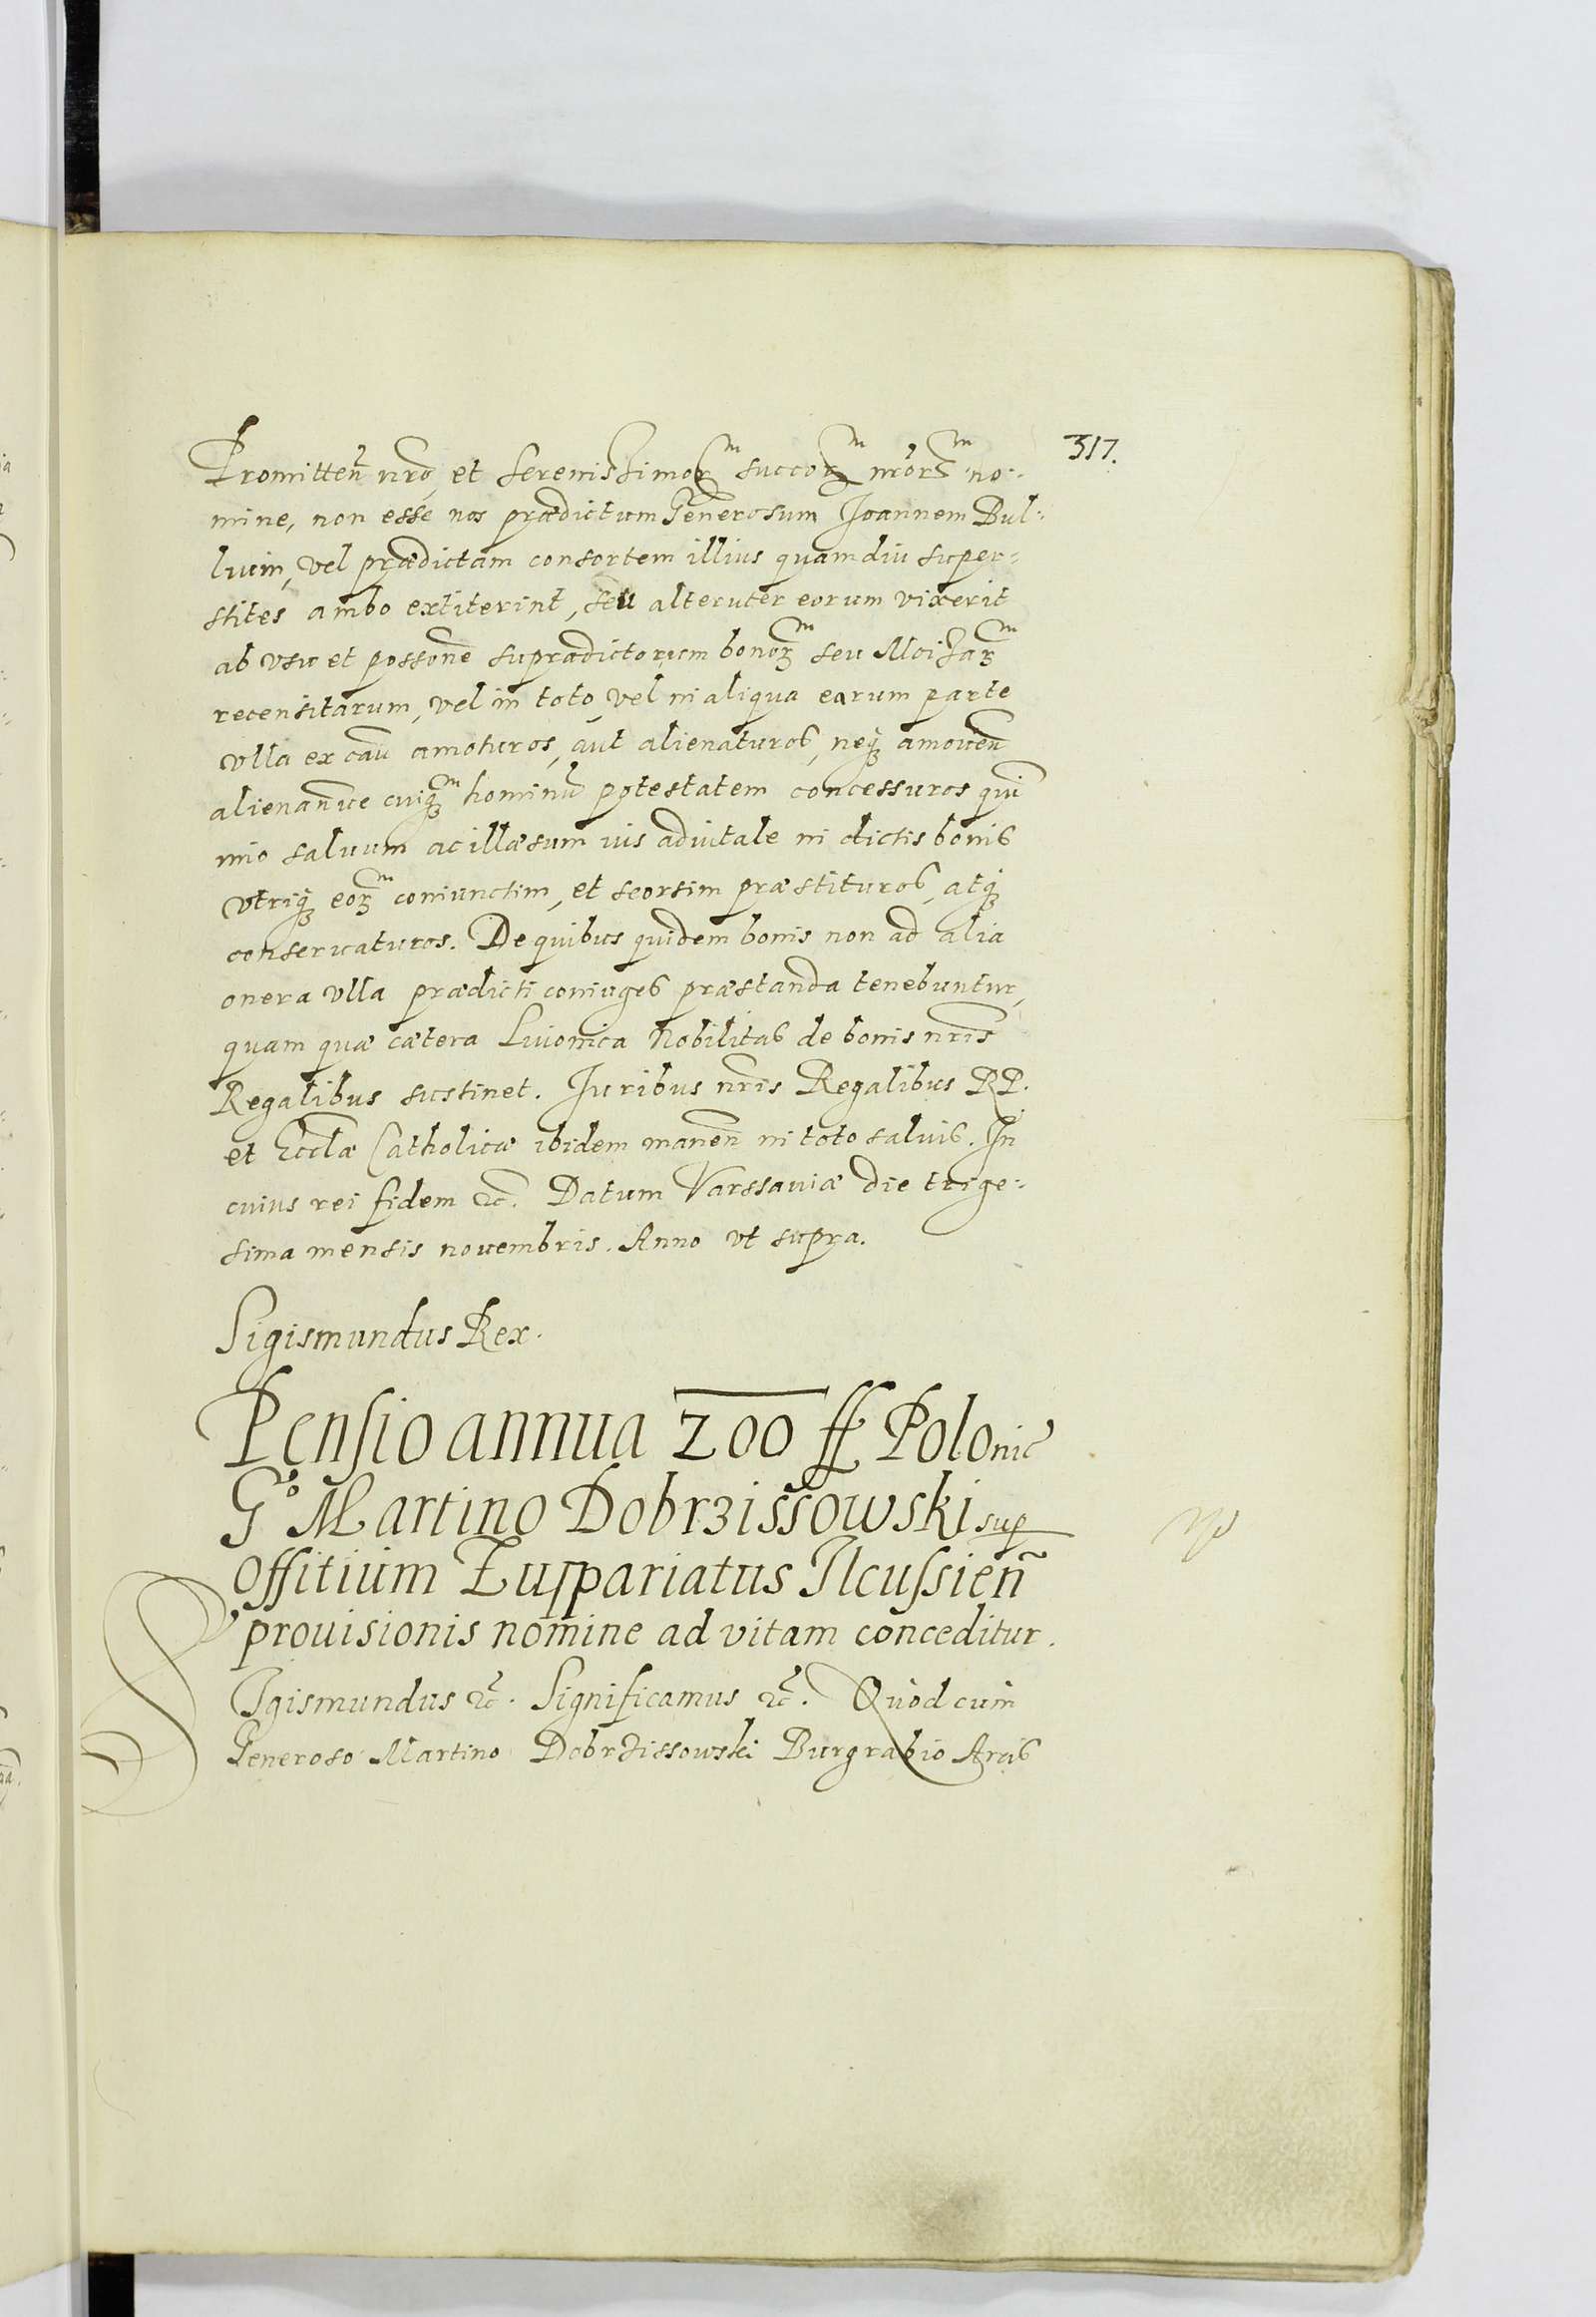 317.
Promitten̄ nr̄o, et serenissimor̄m succor̄m nr̄or̄m no-
mine, non esse nos prædictum Generosum Joannem Bul-
luim, vel prædictam consortem illius quamdiu super-
stites ambo extiterint, seu alteruter eorum vixerit
ab vsu et possōne supradictorum bonor̄m seu Moizar̄m
recensitarum, vel in toto, vel in aliqua earum parte
vlla ex cau̅ amoturos, aut alienaturos, neq̨ amouen̄
alienanue cuiq̨m hominu̅ potestatem concessuros qui
imo saluum ac illæsum ius aduitale in dictis bonis
vtriq̨ eor̄m coniunctim, et seorsim præstituros, atq̨
conseruaturos. De quibus quidem bonis non ad alia
onera vlla prædicti coniuges præstanda tenebuntur,
quam quæ cætera Liuonica Nobilitas de bonis nr̄is
Regalibus sustinet. Juribus nr̄is Regalibus RP.
et Eccl̄æ Catholicæ ibidem manen̄ in toto saluis. In
cuius rei fidem &c. Datum Varssauiæ die trige-
sima mensis nouembris. Anno vt supra.
Sigismundus Rex.
Pensio annua 200 ff Polonic
Go Martino Dobrzissowski sup
offitium Zuppariatus Ilcussien̄
prouisionis nomine ad vitam conceditur.
SIgismundus &c. Significamus &c. Quod cum
Generoso Martino Dobrzissowski Burgrabio Arcis